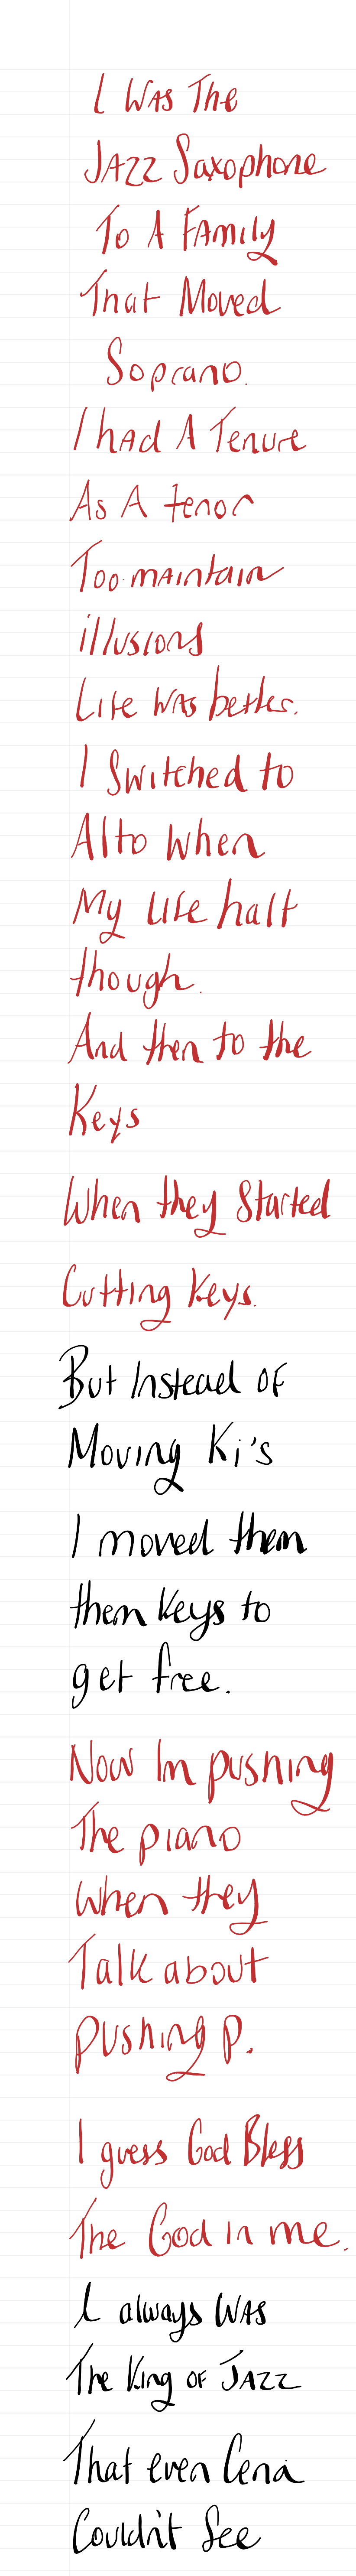 I WAS The
JAZZ Saxophone
To A FAMily
That Moved
Soprano.
I hAd A Tenure
As A tenor
Too mAintain
illusions
Life WAS better.
I Switched to
Alto When
My life half
though.
And then to the
Keys
When they Started
Cutting Keys.
But Instead OF
Moving Ki's
I moved them
them keys to
get free.
Now Im pushing
The piano
When they
Talk about
pushing p.
I guess God Bless
The God in me.
I always WAS
The King OF JAZZ
That even Cena
Couldn't See